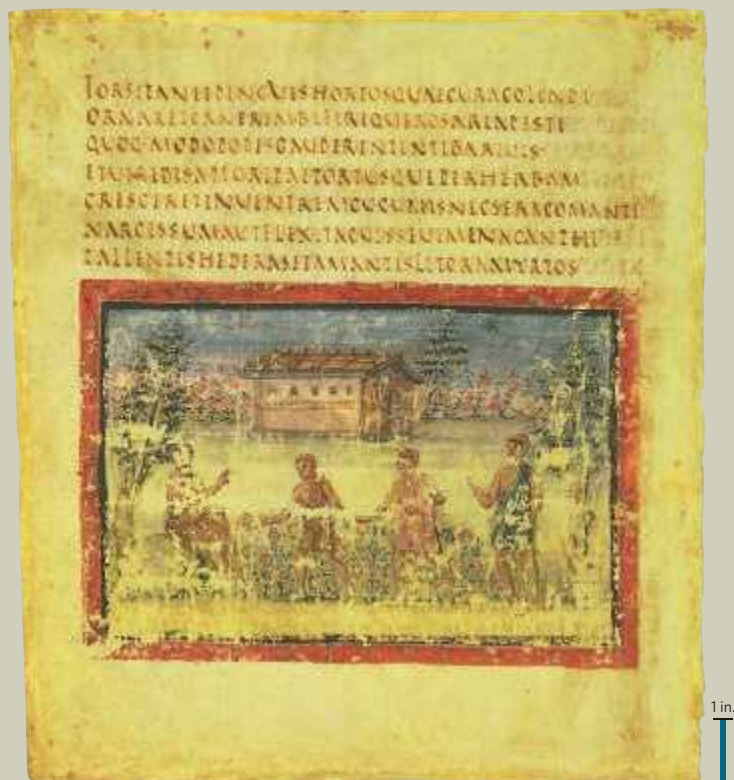 FORSITANETPINGUISHORTOSQUAECURACOLENDI
ORNARETCANEREMBIFERIQUEROSARIAPESTI
QUOQ·MODOPOTISGAUDERENTINTIBARIUIS
ETUIRIDISAPIORIPAETORTUSQUEPERHERBAM
CRESCERETINUENTREMCUCUMISNECSERACOMANTE
NARCISSUMAUTFLEXITACUISSEUIMENACANTHI
PALLENTISHEDERASETAMANTISLITORAMYRTOS
1 in.